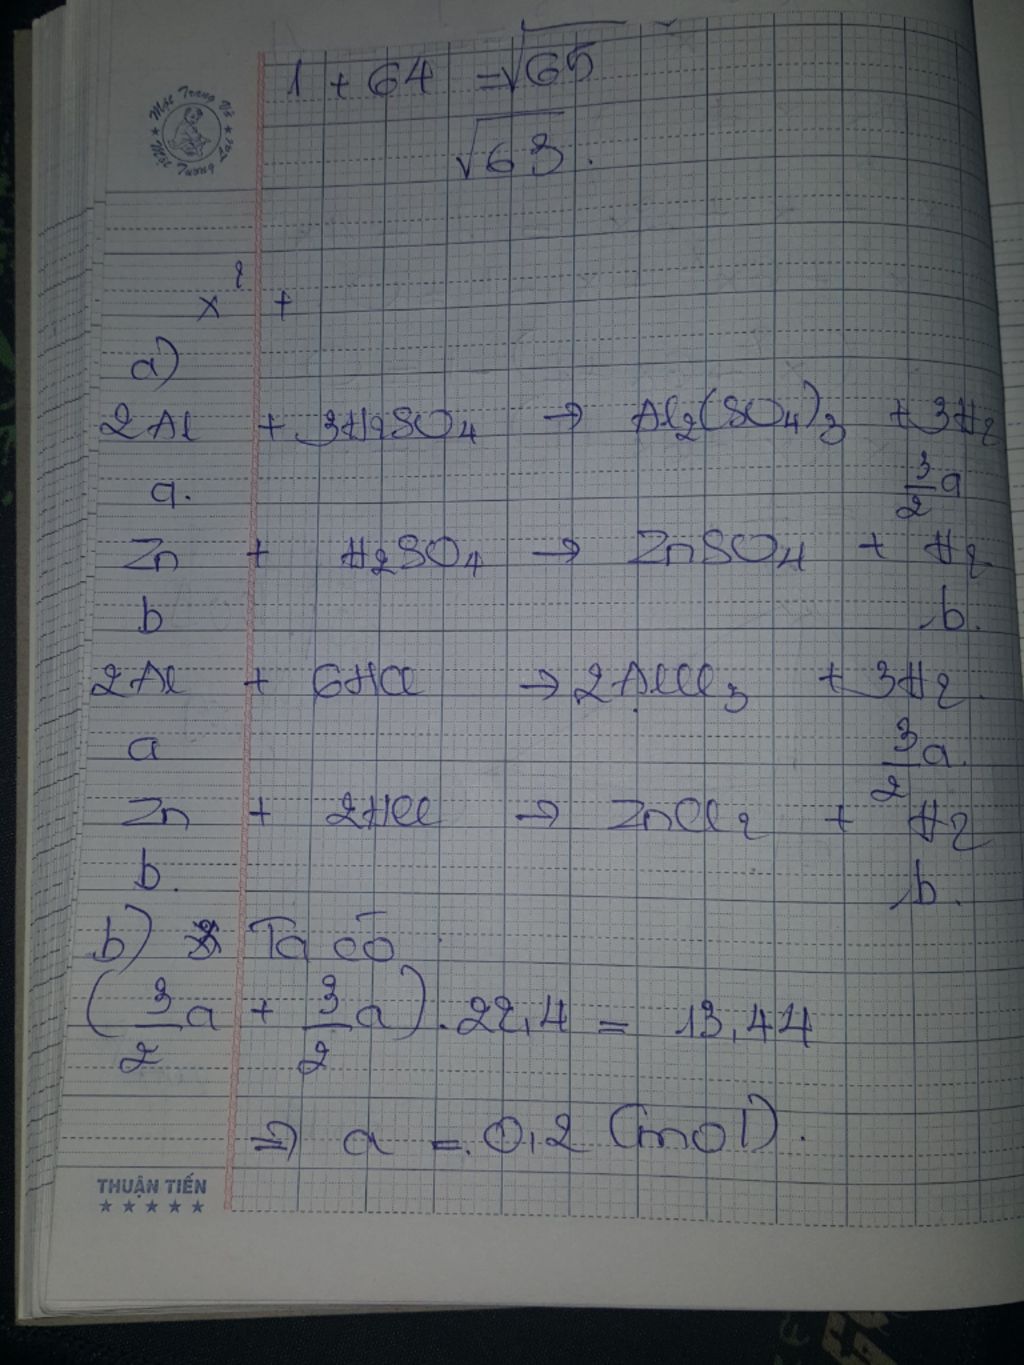 1 + 64 = √65
√63.
Một Trong Về
x² +
a)
2Al + 3H₂SO₄ → Al₂(SO₄)₃ + 3H₂
a. 3/2 a
Zn + H₂SO₄ → ZnSO₄ + H₂
b b.
2Al + 6HCl → 2AlCl₃ + 3H₂.
a 3/2 a.
Zn + 2HCl → ZnCl₂ + H₂
b. b.
b) Ta có
(3/2 a + 3/2 a).22,4 = 13,44
⇒ a = 0,2 (mol).
THUẬN TIẾN